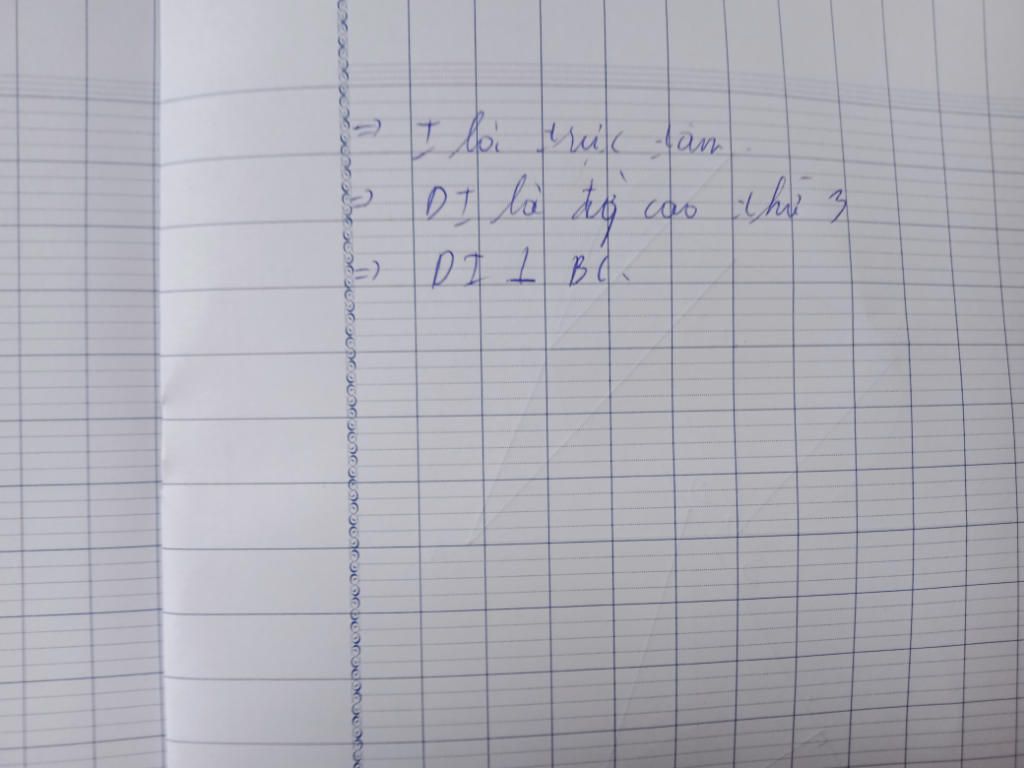 => I là trực tâm.
=> DI là đg cao thứ 3
=> DI ⊥ BC.